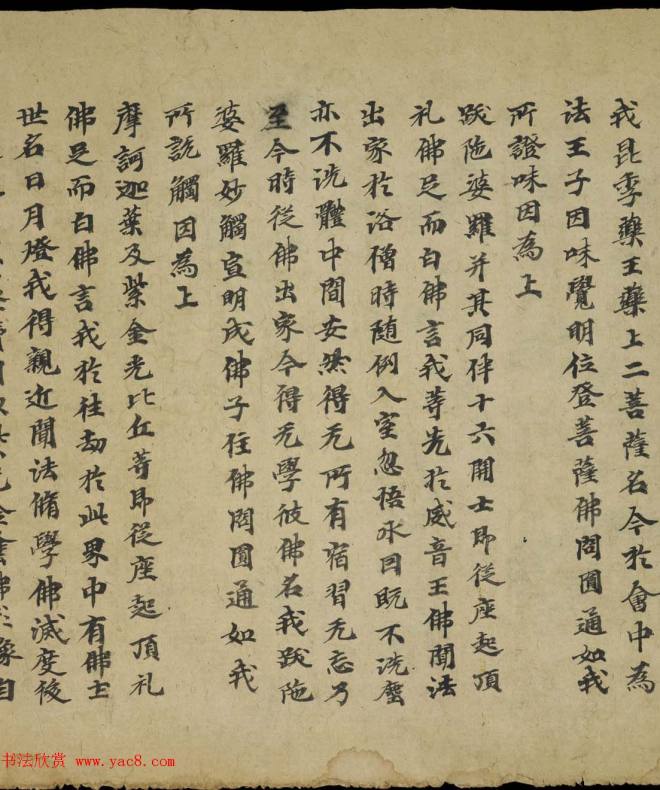 我昆季藥王藥上二菩薩名今於會中為
法王子因味覺明位登菩薩佛問圓通如我
所證味因為上
跋陁婆羅并其同伴十六開士即從座起頂
礼佛足而白佛言我等先於威音王佛聞法
出家於浴僧時随例入室忽悟水因既不洗塵
亦不洗體中間安然得无所有宿習无忘乃
至今時從佛出家今得无學彼佛名我跋陁
婆羅妙觸宣明成佛子住佛問圓通如我
所説觸因為上
摩訶迦葉及紫金光比丘等即從座起頂礼
佛足而白佛言我於往劫於此界中有佛出
世名日月燈我得親近聞法脩學佛滅度後
书法欣赏 www.yac8.com